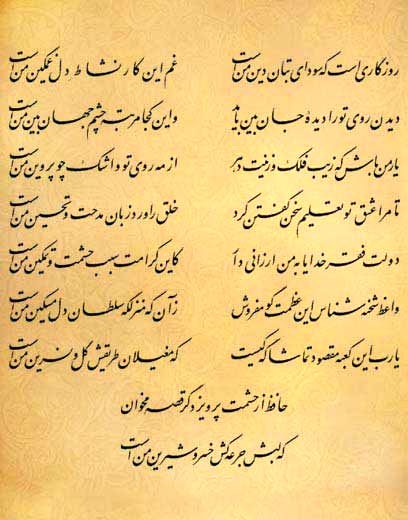 روزگاری است که سودای بتان دین من است غم این کار نشاط دل غمگین من است
دیدن روی تو را دیدهٔ جان بین باید واین کجا مرتبه چشم جهان بین من است
یار من باش که زیب فلک و زینت دهر از مه روی تو و اشک چو پروین من است
تا مرا عشق تو تعلیم سخن گفتن کرد خلق را ورد زبان مدحت و تحسین من است
دولت فقر خدایا به من ارزانی دار کاین کرامت سبب حشمت و تمکین من است
واعظ شحنه شناس این عظمت گو مفروش زآن که منزلگه سلطان دل مسکین من است
یارب این کعبه مقصود تماشاگه کیست که مغیلان طریقش گل و نسرین من است
حافظ از حشمت پرویز دگر قصه مخوان
که لبش جرعه کش خسرو شیرین من است